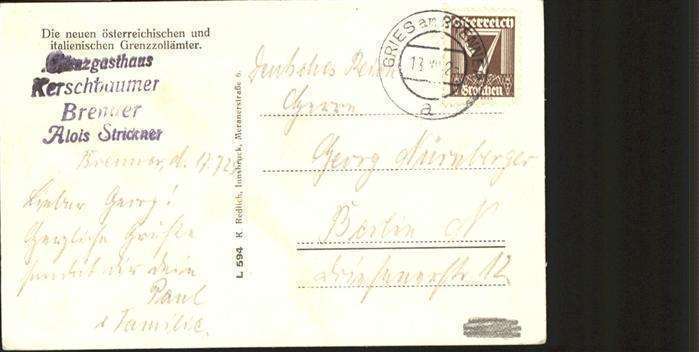 Die neuen österreichischen und
italienischen Grenzzollämter.
Grenzgasthaus
Kerschbaumer
Brenner
Alois Strickner
Brenner, d. 17.7.
Lieber Georg!
Herzliche Grüße
sendet dir dein
Paul
u Familie.
L 594 K Redlich, Innsbruck, Meranerstraße 6.
GRIES am BRENNER
a
Österreich
7
Groschen
Deutsches Reich
Herrn
Georg Nürnberger
Berlin N
12